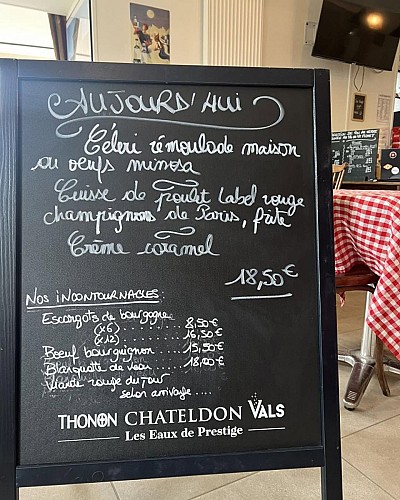 AUJOURD'HUI
Céleri rémoulade maison
ou oeufs mimosa
Cuisse de poulet Label rouge
champignons de Paris, frite
Crème caramel
18,50€
NOS INCONTOURNABLES:
Escargots de bourgogne
(x6) ....... 8,50€
(x12) ....... 16,50€
Boeuf bourguignon ..... 15,50€
Blanquette de veau .... 18,00€
Viande rouge du jour
selon arrivage ....
THONON CHATELDON VALS
Les Eaux de Prestige